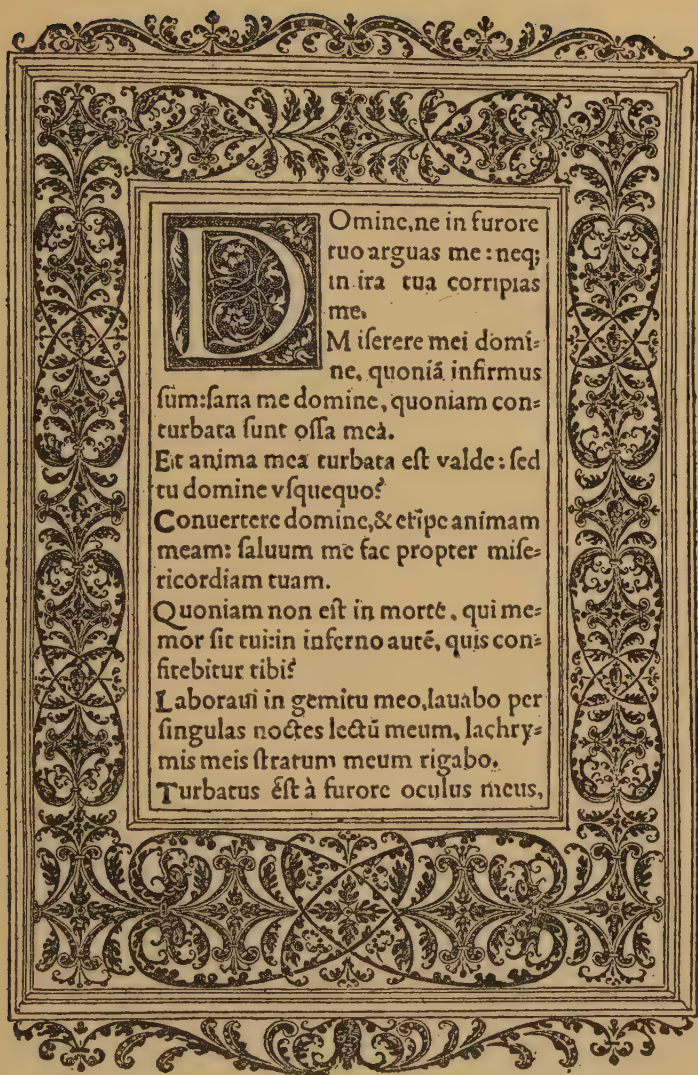 DOmine, ne in furore
tuo arguas me: neq;
in ira tua corripias
me.
Miſerere mei domi⸗
ne, quoniã infirmus
ſum: ſana me domine, quoniam con⸗
turbata ſunt oſſa mea.
Et anima mea turbata eſt valde: ſed
tu domine vſquequo?
Conuertere domine, & eripe animam
meam: ſaluum me fac propter miſe⸗
ricordiam tuam.
Quoniam non eſt in morte, qui me⸗
mor ſit tui: in inferno autẽ, quis con⸗
fitebitur tibi?
Laboraui in gemitu meo, lauabo per
ſingulas noctes lectũ meum, lachry⸗
mis meis ſtratum meum rigabo.
Turbatus eſt à furore oculus meus,